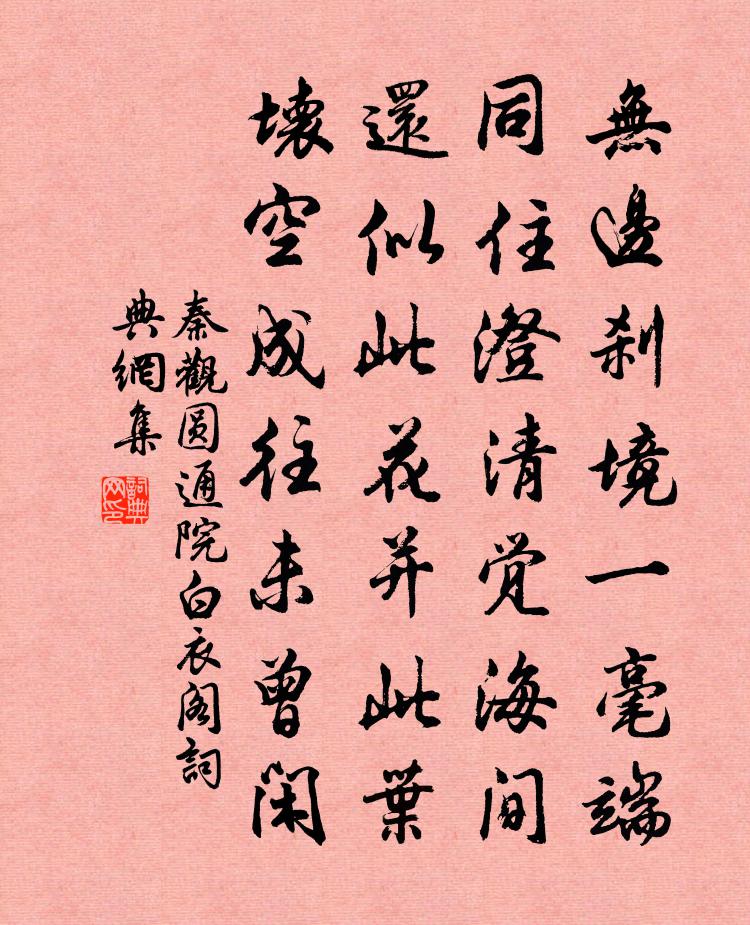 無邊刹境一毫端
同住澄清覺海間
還似此花并此葉
壞空成往未曾閑
秦觀圓通院白衣阁詞
典網集
詞典网印